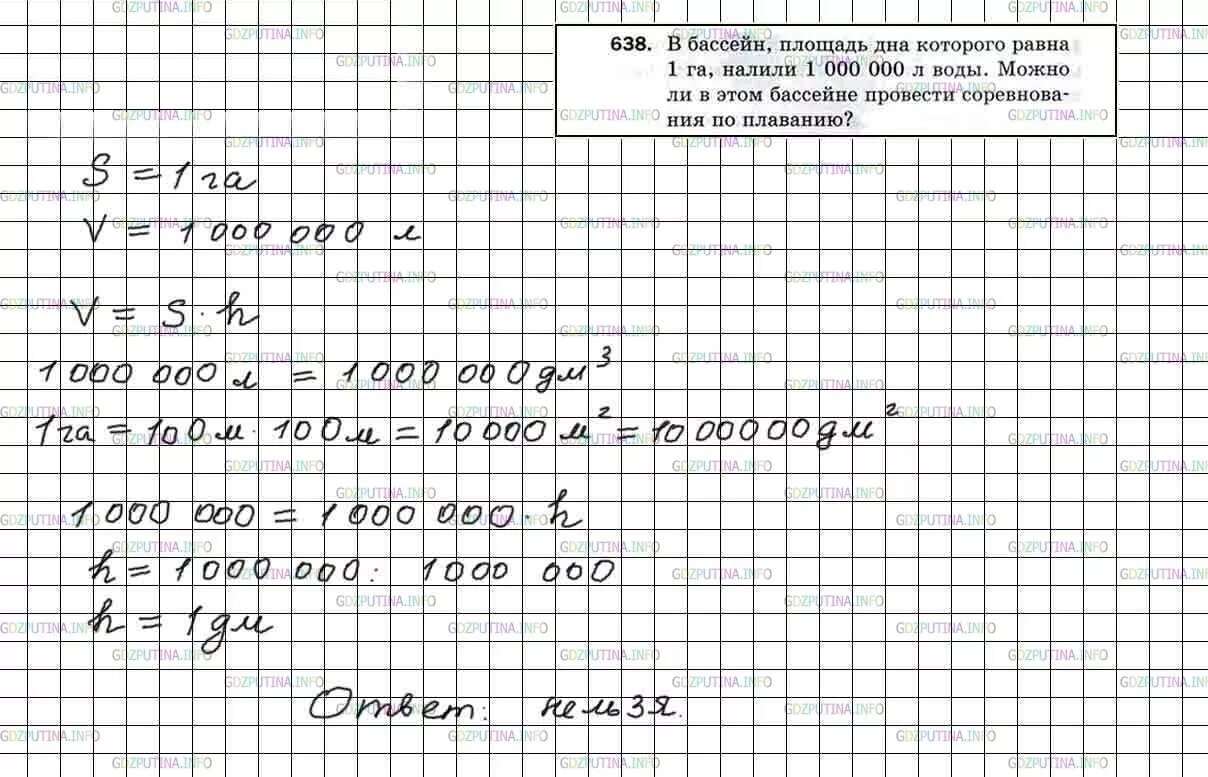 638. В бассейн, площадь дна которого равна
1 га, налили 1 000 000 л воды. Можно
ли в этом бассейне провести соревнова-
ния по плаванию?
S = 1 га
V = 1 000 000 л
V = S · h
1 000 000 л = 1 000 000 дм³
1 га = 100 м · 100 м = 10 000 м² = 1000000 дм²
1 000 000 = 1 000 000 · h
h = 1 000 000 : 1000 000
h = 1 дм
Ответ: нельзя.
GDZPUTINA.INFO